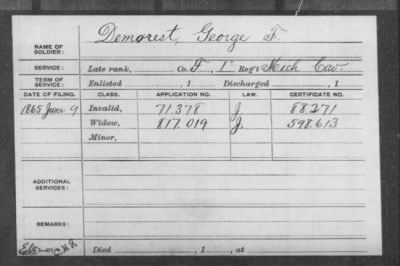 NAME OF SOLDIER: Demorest, George F.
SERVICE: Late rank, Co. F, 1" Reg't Mich Cav.
TERM OF SERVICE: Enlisted , 1 Discharged , 1
DATE OF FILING. CLASS. APPLICATION NO. LAW. CERTIFICATE NO.
1865 June 9 Invalid, 71.378 J 88.271
Widow, 817.019 J. 598.613
Minor,
ADDITIONAL SERVICES:
REMARKS:
Died , 1 , at